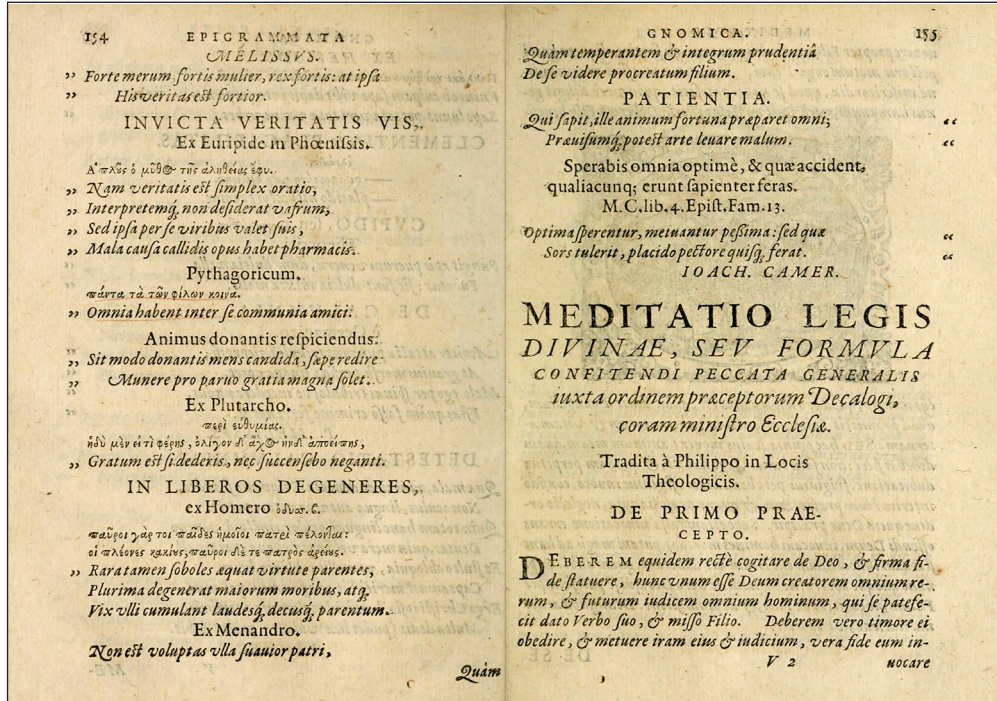 154 EPIGRAMMATA
MELISSVS.
,, Forte merum, fortis mulier, rex fortis: at ipsa
,, His veritas est fortior.
INVICTA VERITATIS VIS,
Ex Euripide in Phœnissis.
Α῾πλοῦς ὁ μῦθος τῆς ἀληθείας ἔφυ.
,, Nam veritatis est simplex oratio,
,, Interpretemq́; non desiderat vafrum,
,, Sed ipsa per se viribus valet suis,
,, Mala causa callidis opus habet pharmacis.
Pythagoricum.
πάντα τὰ τῶν φίλων κοινα.
,, Omnia habent inter se communia amici:
Animus donantis respiciendus.
,, Sit modo donantis mens candida, sæpe redire
,, Munere pro paruo gratia magna solet.
Ex Plutarcho.
περὶ εὐθυμίας.
ἡδὺ μὲν εἴ τι φέρῃς, ὀλίγον δ' ἄχος ἢν δ' ἀποείπῃς,
,, Gratum est si dederis, nec succensebo neganti.
IN LIBEROS DEGENERES,
ex Homero ὀδυσ. ϐ.
παῦροι γάρ τοι παῖδες ὁμοῖοι πατρὶ πέλονται:
οἱ πλέονες κακίους, παῦροι δέ τε πατρὸς ἀρείους.
,, Rara tamen soboles æquat virtute parentes,
Plurima degenerat maiorum moribus, atq́;
Vix vlli cumulant laudesq́; decusq́; parentum.
Ex Menandro.
Non est voluptas vlla suauior patri,
Quàm
GNOMICA. 155
Quàm temperantem & integrum prudentiâ
De se videre procreatum filium.
PATIENTIA.
Qui sapit, ille animum fortuna præparet omni; ,,
Præuisumq́; potest arte leuare malum. ,,
Sperabis omnia optimè, & quæ accident,
qualiacunq; erunt sapienter feras.
M.C.lib.4.Epist.Fam.13.
Optima sperentur, metuantur peßima: sed quæ ,,
Sors tulerit, placido pectore quisq́; ferat. ,,
IOACH. CAMER.
MEDITATIO LEGIS
DIVINAE, SEV FORMVLA
CONFITENDI PECCATA GENERALIS
iuxta ordinem præceptorum Decalogi,
coram ministro Ecclesiæ.
Tradita à Philippo in Locis
Theologicis.
DE PRIMO PRAE-
CEPTO.
DEBEREM equidem rectè cogitare de Deo, & firma fi-
de statuere, hunc vnum esse Deum creatorem omnium re-
rum, & futurum iudicem omnium hominum, qui se patefe-
cit dato Verbo suo, & misso Filio. Deberem vero timore ei
obedire, & metuere iram eius & iudicium, vera fide eum in-
V 2 uocare